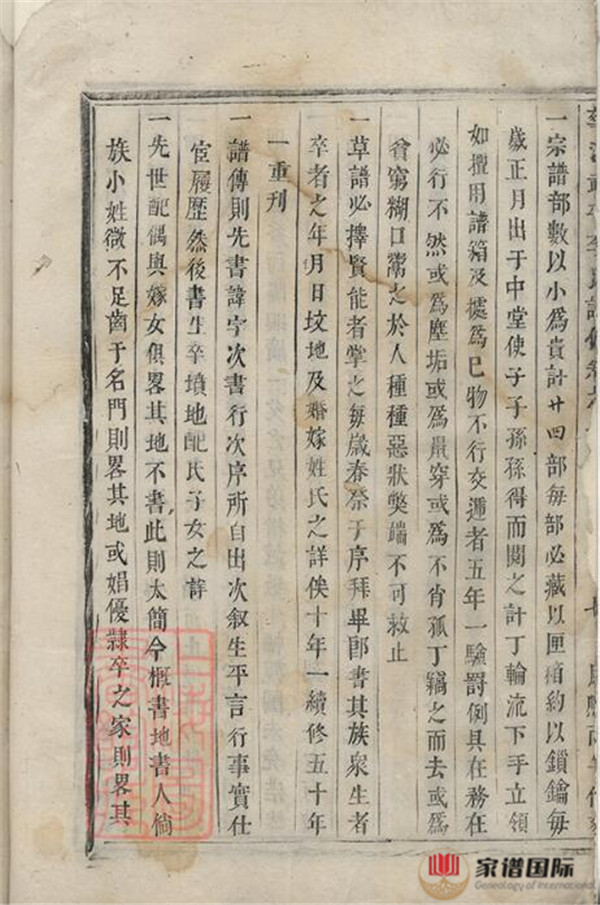 一宗譜部數以小爲貴計廿四部每部必藏以匣箱約以鎖鑰每
歲正月出于中堂使子子孫孫得而閱之計丁輪流下手立領
如擅用譜箱及據爲已物不行交遞者五年一驗罰例具在務在
必行不然或爲塵垢或爲鼠穿或爲不肖孤丁竊之而去或爲
貧窮糊口鬻之於人種種惡狀獘端不可救止
一草譜必擇賢能者掌之每歲春祭于序拜畢卽書其族衆生者
卒者之年月日坟地及婚嫁姓氏之詳俟十年一續修五十年
一重刋
一譜傳則先書諱字次書行次序所自出次叙生平言行事實仕
宦履歷然後書生卒墳地配氏子女之詳
一先世配偶與嫁女俱畧其地不書此則太簡今概書地書人倘
族小姓微不足齒于名門則畧其地或娼優隸卒之家則畧其
家谱国际
Genealogy of International